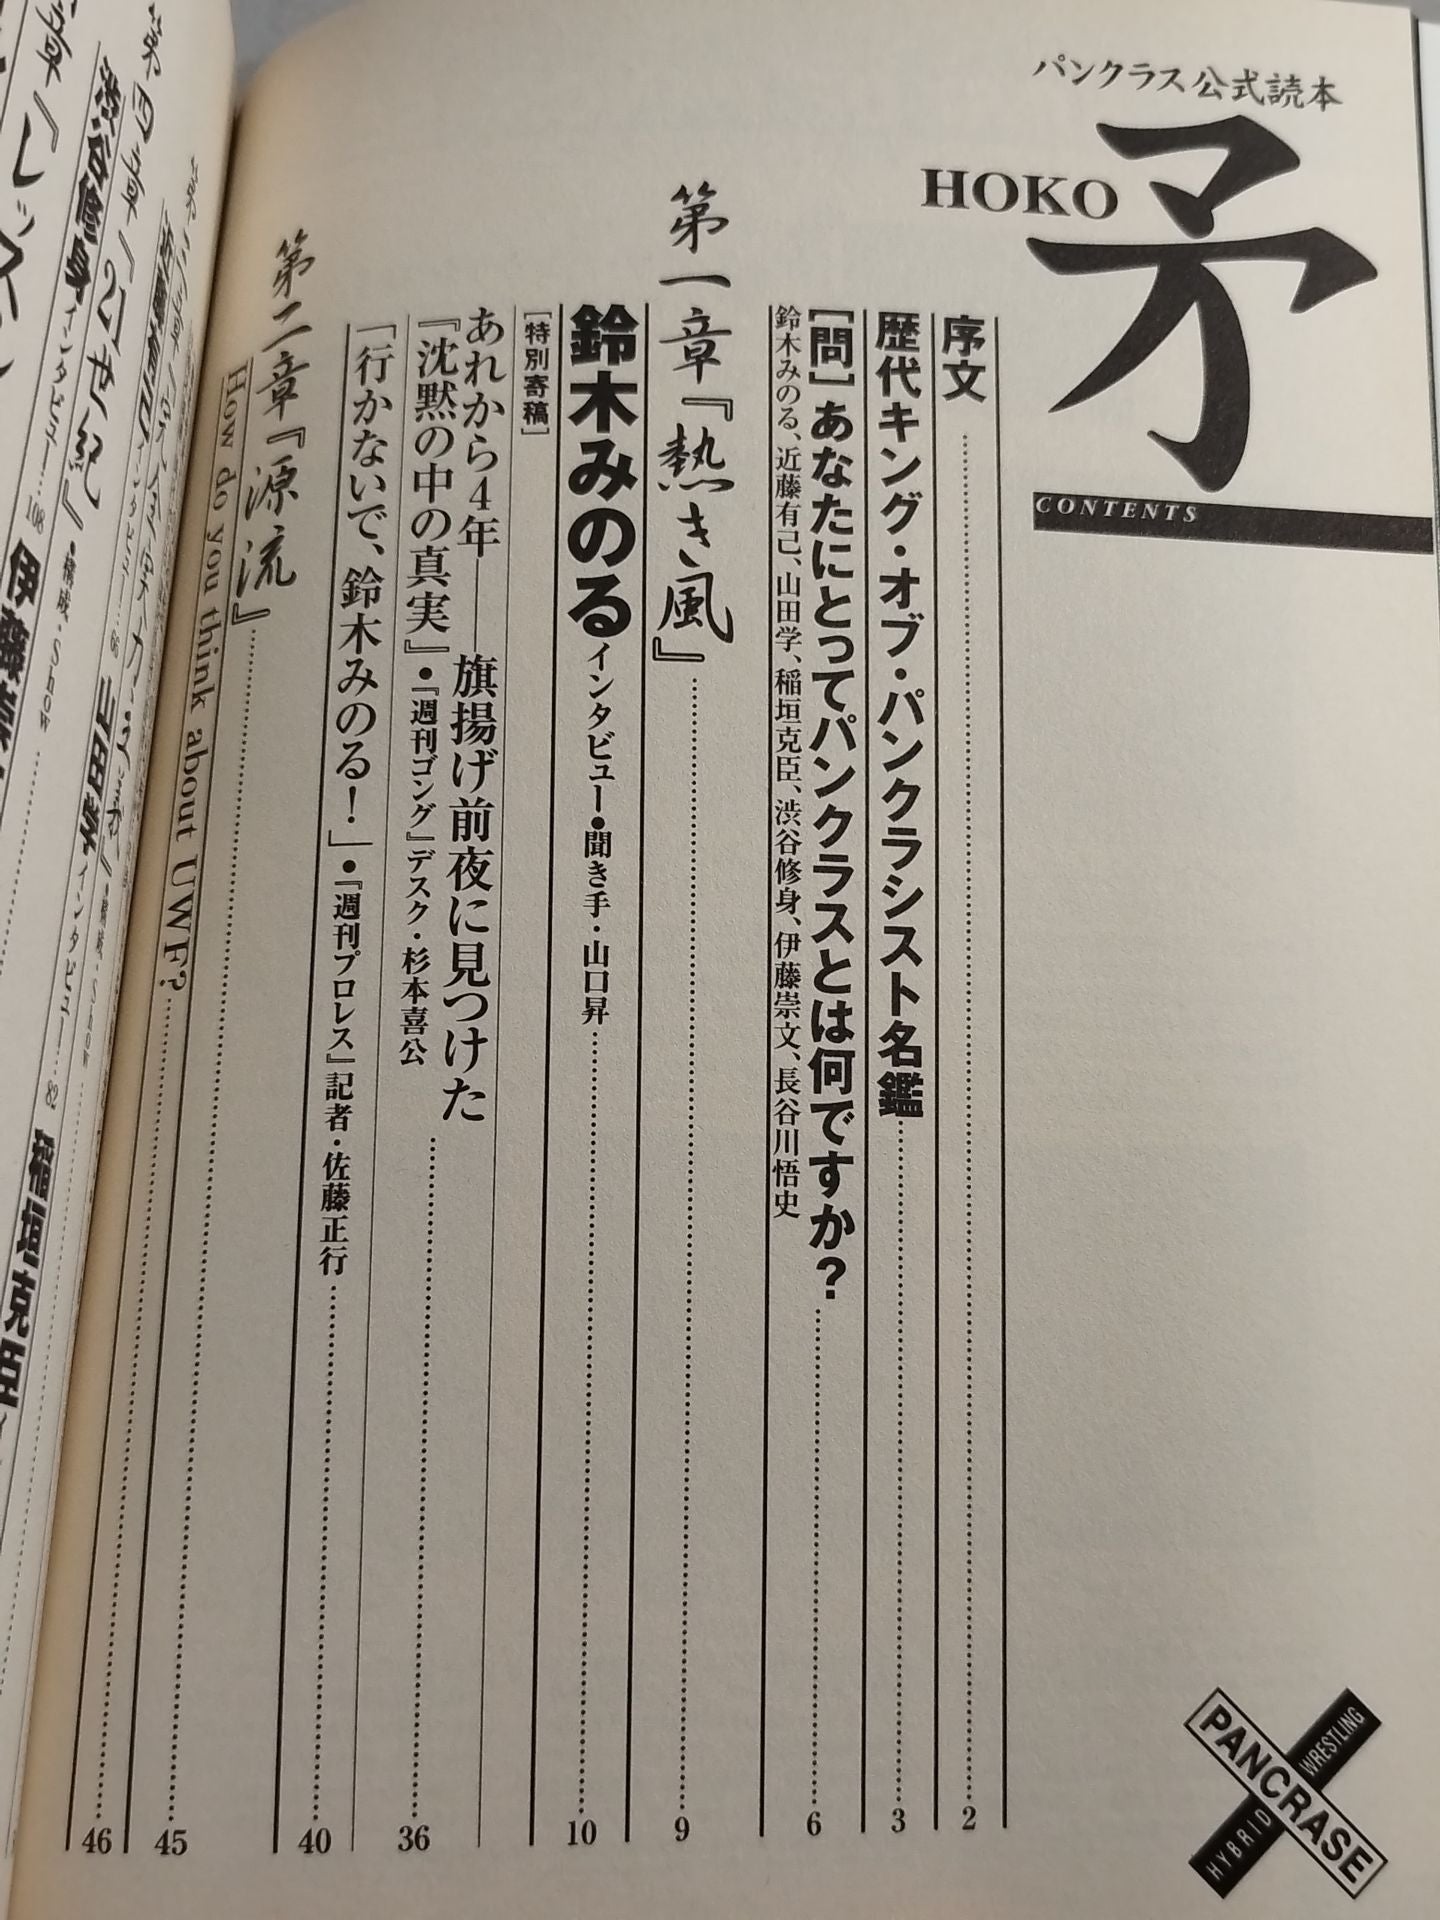 パンクラス公式読本
矛
HOKO
CONTENTS
序文 2
歴代キング・オブ・パンクラシスト名鑑 3
[問]あなたにとってパンクラスとは何ですか? 6
鈴木みのる、近藤有己、山田学、稲垣克臣、渋谷修身、伊藤崇文、長谷川悟史
第一章『熱き風』 9
鈴木みのる インタビュー●聞き手・山口昇 10
[特別寄稿]
あれから4年――旗揚げ前夜に見つけた
『沈黙の中の真実』●『週刊ゴング』デスク・杉本喜公 36
「行かないで、鈴木みのる!」●『週刊プロレス』記者・佐藤正行 40
第二章『源流』 45
How do you think about UWF? 46
山田学 インタビュー 82
稲垣克臣
第四章『21世紀』●構成・Snow
渋谷修身 インタビュー 108
伊藤崇
PANCRASE
HYBRID WRESTLING